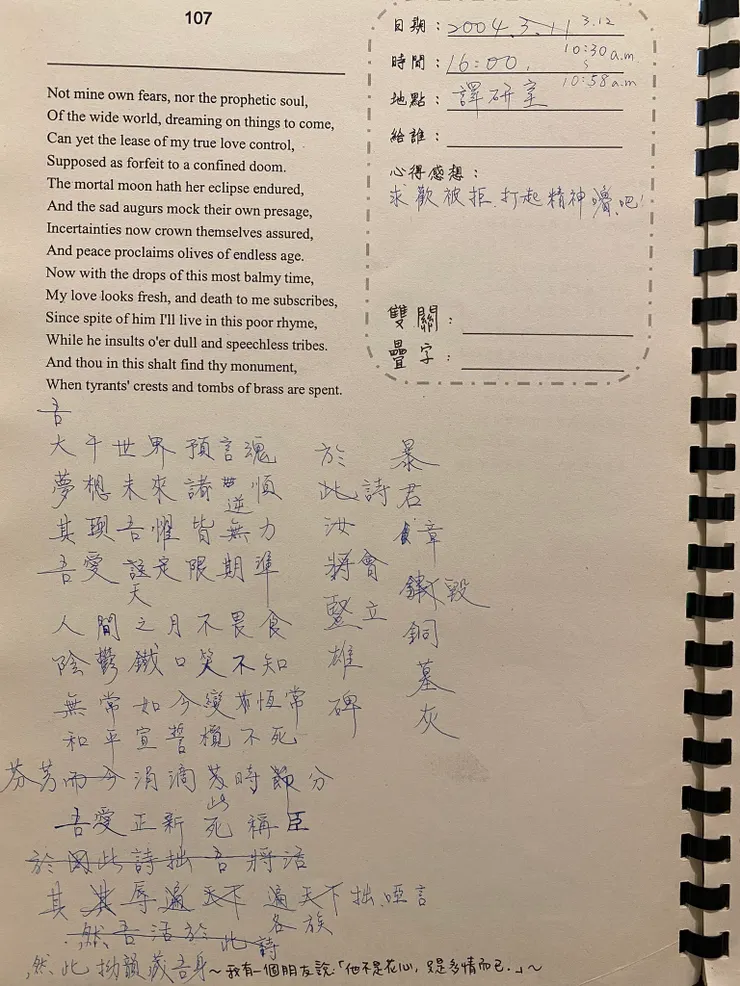 107
Not mine own fears, nor the prophetic soul,
Of the wide world, dreaming on things to come,
Can yet the lease of my true love control,
Supposed as forfeit to a confined doom.
The mortal moon hath her eclipse endured,
And the sad augurs mock their own presage,
Incertainties now crown themselves assured,
And peace proclaims olives of endless age.
Now with the drops of this most balmy time,
My love looks fresh, and death to me subscribes,
Since spite of him I'll live in this poor rhyme,
While he insults o'er dull and speechless tribes.
And thou in this shalt find thy monument,
When tyrants' crests and tombs of brass are spent.
日期:2004.3.11 3.12
時間:16:00. 10:30 a.m
10:58 a.m
地點:譯研室
給誰:
心得感想:
求歡被拒.打起精神嚕.吧!
雙關:
疊字:
吾
大千世界預言魂
夢想未來諸逆順
其現吾懼皆無力
吾愛 定限期準
天
人間之月不畏食
陰鬱鐵口笑不知
無常如今變有恆常
和平宣誓欖不死
芬芳而今涓滴 時節分
吾愛正新此死稱臣
於因此詩拙吾將活
其 辱遍天下 遍天下拙.啞言
各族
然吾活於此詩
然.此拗韻藏吾身
~我有一個朋友說:「他不是花心,只是多情而已.」~
於
此詩
汝
將會
豎立
雄
碑
暴
君
章
毀
銅
墓
灰